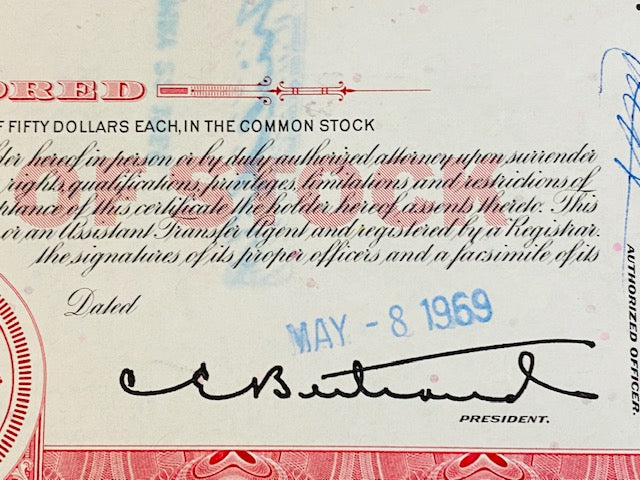 DRED
F FIFTY DOLLARS EACH, IN THE COMMON STOCK
der hereof in person or by duly authorized attorney upon surrender
rights, qualifications, privileges, limitations and restrictions of
OF STOCK
ptance of this certificate the holder hereof assents thereto. This
or an Assistant Transfer Agent and registered by a Registrar.
the signatures of its proper officers and a facsimile of its
Dated
MAY - 8 1969
C E Bertrand
PRESIDENT.
AUTHORIZED OFFICER.